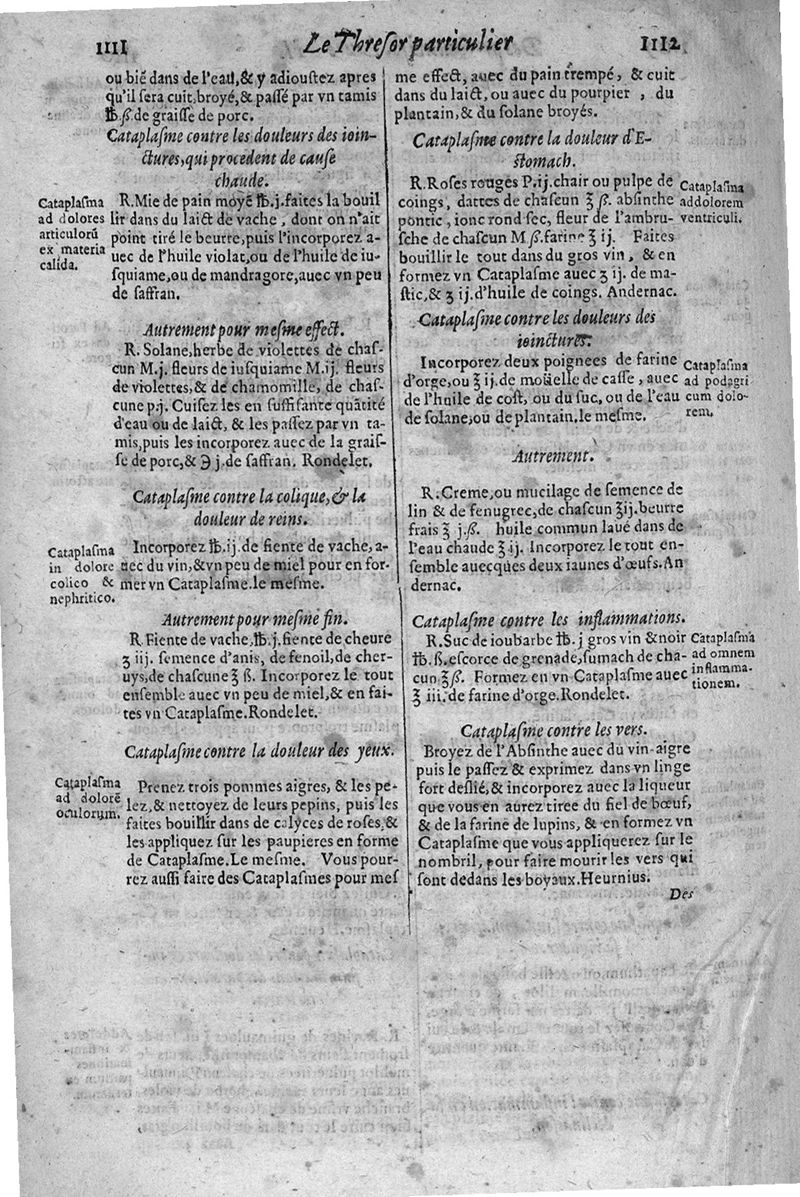 1111
Le Thresor particulier
1112
ou biẽ dans de l'eau,& y adioustez apres
qu'il sera cuit, broyé,& passé par vn tamis
℔.ß.de graisse de porc.
Cataplasme contre les douleurs des ioin-
ctures,qui procedent de cause
chaude.
Cataplasma
ad dolores
articulorũ
ex materia
calida.
R.Mie de pain moyẽ ℔.j.faites la bouil
lir dans du laict de vache , dont on n'ait
point tiré le beurre,puis l'incorporez a-
uec de l'huile violat,ou de l'huile de iu-
squiame,ou de mandragore,auec vn peu
de saffran.
Autrement pour mesme effect.
R. Solane,herbe de violettes de chas-
cun M.j. fleurs de iusquiame M.ij. fleurs
de violettes,& de chamomille, de chas-
cune p.j. Cuisez les en suffisante quãtité
d'eau ou de laict, & les passez par vn ta-
mis,puis les incorporez auec de la grais-
se de porc,& ℈ j.de saffran. Rondelet.
Cataplasme contre la colique,& la
douleur de reins.
Cataplasma
in dolore
colico &
nephritico.
Incorporez ℔.ij.de fiente de vache, a-
uec du vin,& vn peu de miel pour en for-
mer vn Cataplasme.le mesme.
Autrement pour mesme fin.
R Fiente de vache,℔.j.fiente de cheure
ʒ iij. semence d'anis, de fenoil,de cher-
uys,de chascune ʒ ß. Incorporez le tout
ensemble auec vn peu de miel,& en fai-
tes vn Cataplasme.Rondelet.
Cataplasme contre la douleur des yeux.
Cataplasma
ad dolorẽ
oculorum.
Prenez trois pommes aigres, & les pe-
lez,& nettoyez de leurs pepins, puis les
faites bouillir dans de calyces de roses,&
les appliquez sur les paupieres en forme
de Cataplasme.Le mesme. Vous pour-
rez aussi faire des Cataplasmes pour mes
me effect, auec du pain trempé, & cuit
dans du laict, ou auec du pourpier , du
plantain,& du solane broyés.
Cataplasme contre la douleur d'E-
stomach.
R.Roses rouges P.ij.chair ou pulpe de
coings, dattes de chascun ʒ ß. absinthe
pontic , ionc rond sec, fleur de l'ambru-
sche de chascun M ß.farine ʒ ij. Faites
bouillir le tout dans du gros vin , & en
formez vn Cataplasme auec ʒ ij. de ma-
stic,& ʒ ij.d'huile de coings. Andernac.
Cataplasma
ad dolorem
ventriculi.
Cataplasme contre les douleurs des
ioinctures.
Incorporez deux poignees de farine
d'orge,ou ʒ ij.de moüelle de casse , auec
de l'huile de cost, ou du suc, ou de l'eau
de solane,ou de plantain.le mesme.
Cataplasma
ad podagri
cum dolo-
rem.
Autrement.
R. Creme,ou mucilage de semence de
lin & de fenugrec,de chascun ʒij.beurre
frais ʒ j.ß. huile commun laué dans de
l'eau chaude ʒ ij. Incorporez le tout en-
semble auecques deux iaunes d'œufs.An
dernac.
Cataplasme contre les inflammations.
R.Suc de ioubarbe ℔. j gros vin & noir
℔.ß.escorce de grenade,sumach de cha-
cun ʒß. Formez en vn Cataplasme auec
ʒ iii.de farine d'orge.Rondelet.
Cataplasma
ad omnem
inflamma-
tionem.
Cataplasme contre les vers.
Broyez de l'Absinthe auec du vin-aigre
puis le passez & exprimez dans vn linge
fort deslié,& incorporez auec la liqueur
que vous en aurez tiree du fiel de bœuf,
& de la farine de lupins, & en formez vn
Cataplasme que vous appliquerez sur le
nombril, pour faire mourir les vers qui
sont dedans les boyaux.Heurnius.
Des